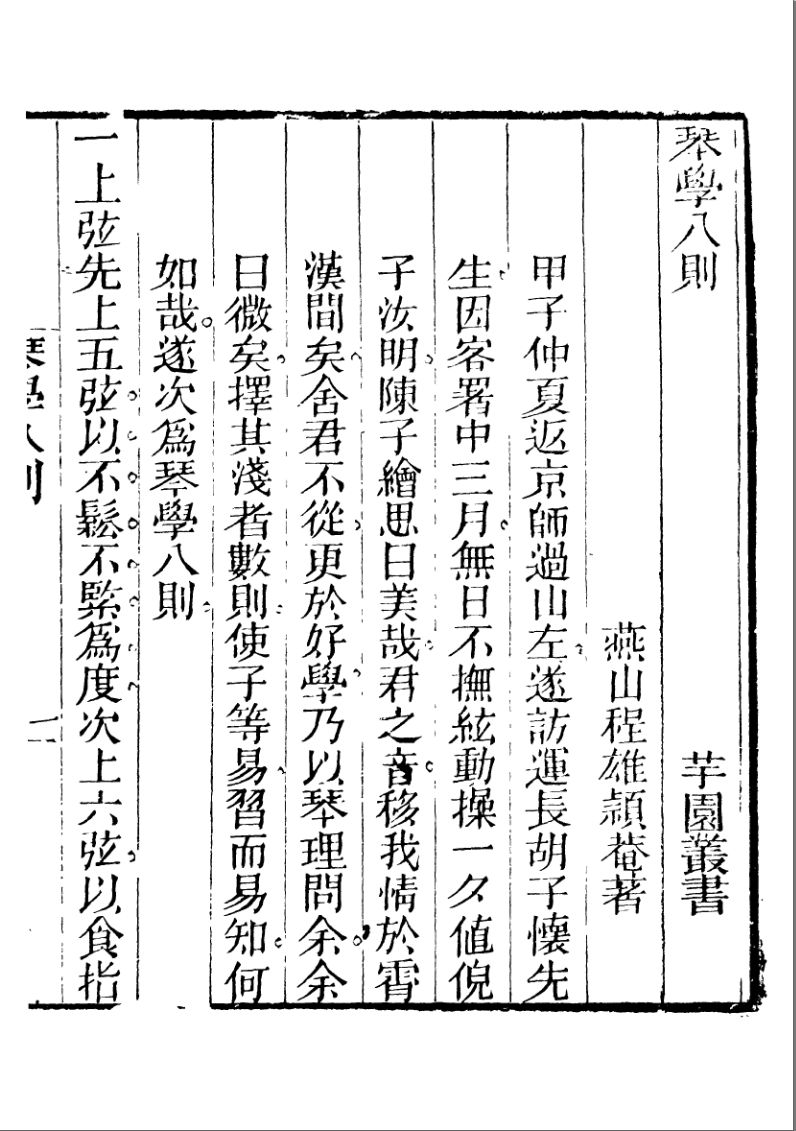 琴學八則 芋園叢書
燕山程雄穎菴著
甲子仲夏返京師過山左遂訪運長胡子懷先
生因客署中三月無日不撫絃動操一夕値倪
子汝明陳子繪思曰美哉君之音移我情於霄
漢間矣舍君不從更於好學乃以琴理問余余
曰微矣擇其淺者數則使子等易習而易知何
如哉遂次爲琴學八則
一上弦先上五弦以不鬆不緊爲度次上六弦以食指
琴學八則 一